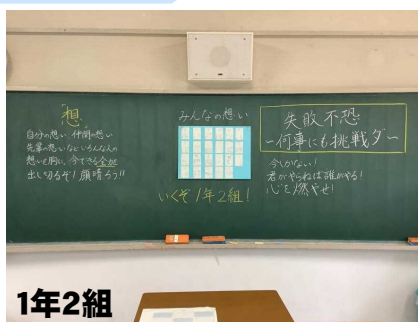 「想」
自分の想い 仲間の想い
先輩の想いなどいろんな人の
想いを胸に、今できる全力
出し切るぞ！顔晴ろう!!
みんなの想い
いくぞ1年2組！
失敗不恐
〜何事にも挑戦ダ〜
今しかない！
君がやらねば誰がやる！
心を燃やせ！
1年2組